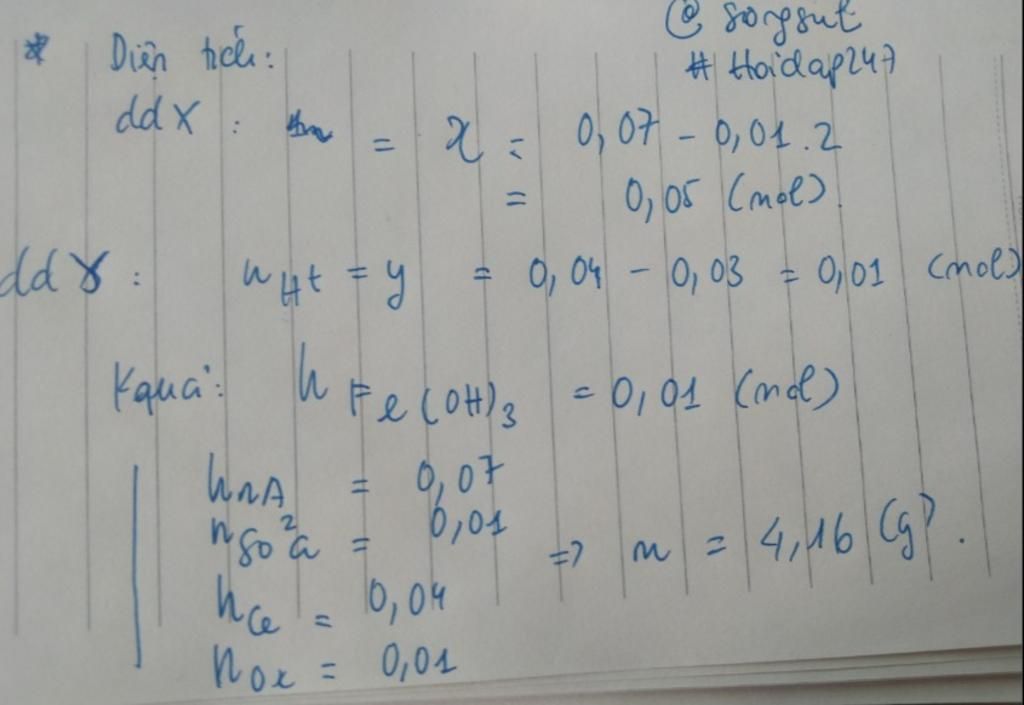 @ sorgsut
# Hoidap247
* Diện tích:
dd X : = x = 0,07 - 0,01.2
= 0,05 (mol).
dd Y : nH+ = y = 0,04 - 0,03 = 0,01 (mol)
Kquả: nFe(OH)3 = 0,01 (mol)
nnA = 0,07
nSO²4 = 0,01
=> m = 4,16 (g).
nCl = 0,04
nOx = 0,01